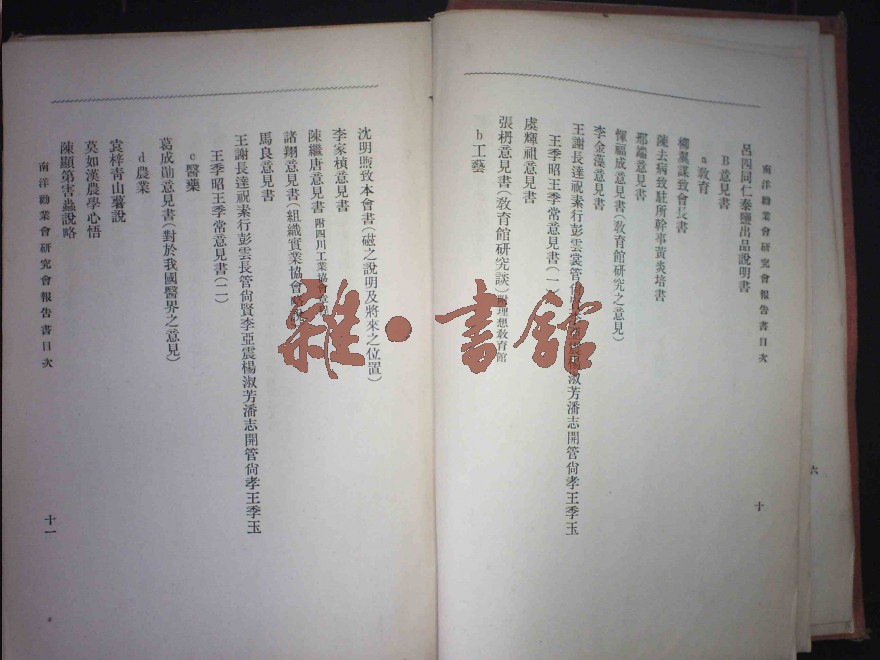 南洋勸業會硏究會報吿書目次
呂四同仁泰鹽出品說明書
B意見書
a敎育
柳翼謀致會長書
陳去病致駐所幹事黃炎培書
邢端意見書
惲福成意見書(敎育館硏究之意見)
李金藻意見書
王謝長達祝素行彭雲裳管尙賢李亞震楊淑芳潘志開管尙孝王季玉
王季昭王季常意見書(一)
虞輝祖意見書
張枬意見書(敎育館硏究談)附理想敎育館
b工藝
十
六
沈明煦致本會書(磁之說明及將來之位置)
李家楨意見書
陳繼唐意見書 附四川工業協會章
諸翔意見書(組織實業協會
馬良意見書
王謝長達祝素行彭雲長管尙賢李亞震楊淑芳潘志開管尙孝王季玉
王季昭王季常意見書(二)
c醫藥
葛成勛意見書(對於我國醫界之意見)
d農業
袁梓靑山薯說
莫如漢農學心悟
陳顯第害蟲說略
南洋勸業會硏究會報吿書目次
十一
雜·書館